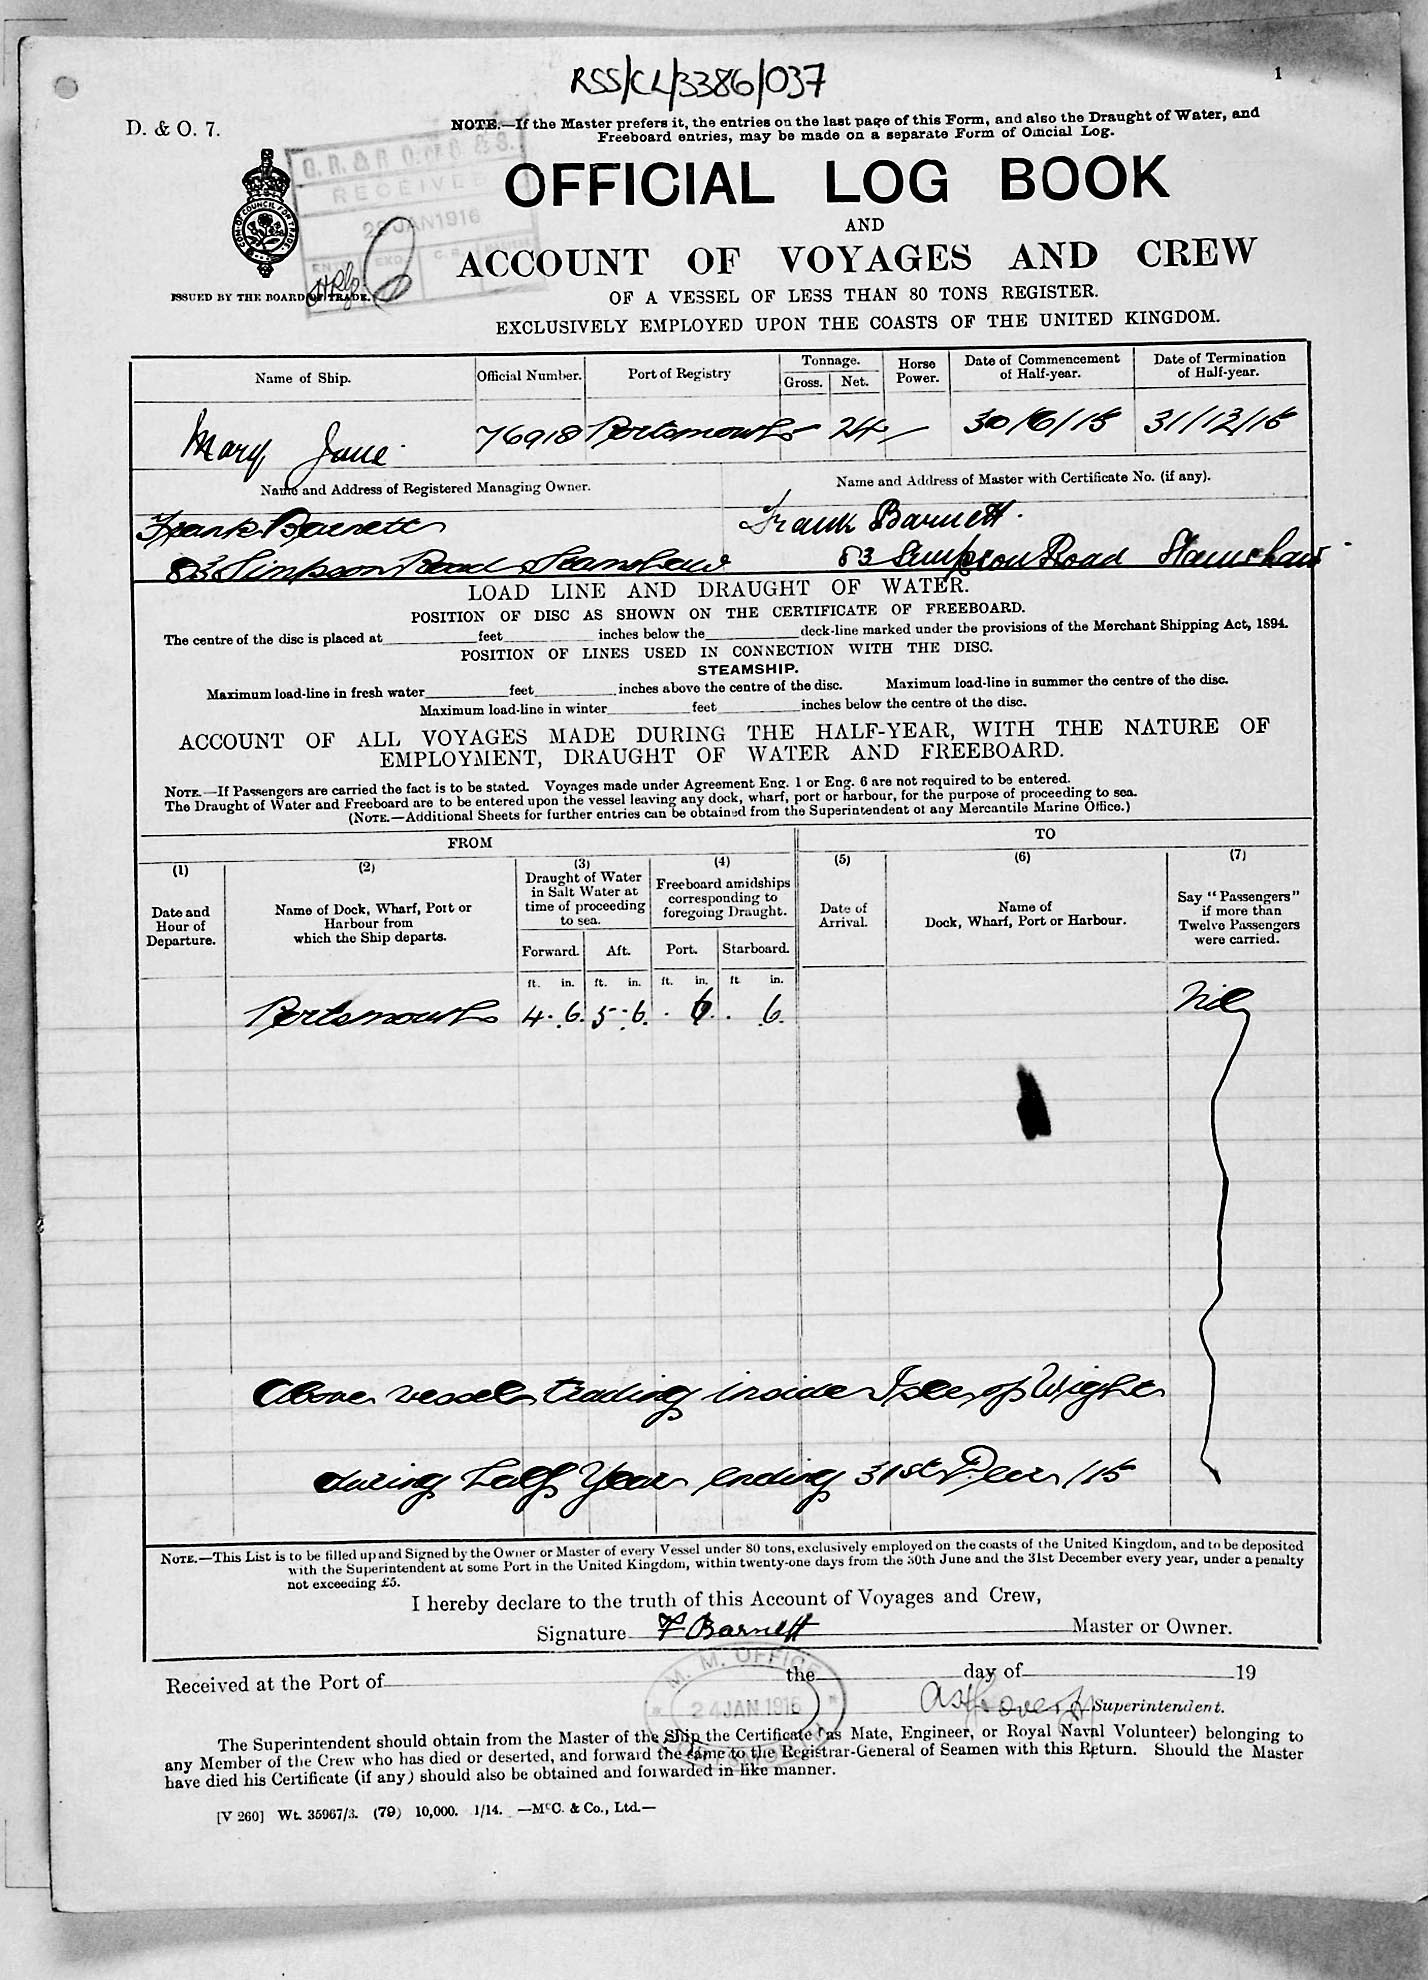 RSS/CL/3386/037
1
D. & O. 7.
NOTE.—If the Master prefers it, the entries on the last page of this Form, and also the Draught of Water, and
Freeboard entries, may be made on a separate Form of Official Log.
RECEIVED
JAN 1916
OFFICIAL LOG BOOK
AND
ACCOUNT OF VOYAGES AND CREW
OF A VESSEL OF LESS THAN 80 TONS REGISTER.
EXCLUSIVELY EMPLOYED UPON THE COASTS OF THE UNITED KINGDOM.
COM. OF COUNCIL FOR TRADE
ISSUED BY THE BOARD OF TRADE.
Name of Ship. Official Number. Port of Registry Tonnage. Gross. Net. Horse Power. Date of Commencement of Half-year. Date of Termination of Half-year.
Mary Jane 76918 Portsmouth 24 30/6/15 31/12/15
Name and Address of Registered Managing Owner. Name and Address of Master with Certificate No. (if any).
Frank Barnett Frank Barnett.
83 Simpson Road Stamshaw 83 Simpson Road Stamshaw
LOAD LINE AND DRAUGHT OF WATER.
POSITION OF DISC AS SHOWN ON THE CERTIFICATE OF FREEBOARD.
The centre of the disc is placed at feet inches below the deck-line marked under the provisions of the Merchant Shipping Act, 1894.
POSITION OF LINES USED IN CONNECTION WITH THE DISC.
STEAMSHIP.
Maximum load-line in fresh water feet inches above the centre of the disc. Maximum load-line in summer the centre of the disc.
Maximum load-line in winter feet inches below the centre of the disc.
ACCOUNT OF ALL VOYAGES MADE DURING THE HALF-YEAR, WITH THE NATURE OF
EMPLOYMENT, DRAUGHT OF WATER AND FREEBOARD.
NOTE.—If Passengers are carried the fact is to be stated. Voyages made under Agreement Eng. 1 or Eng. 6 are not required to be entered.
The Draught of Water and Freeboard are to be entered upon the vessel leaving any dock, wharf, port or harbour, for the purpose of proceeding to sea.
(NOTE.—Additional Sheets for further entries can be obtained from the Superintendent of any Mercantile Marine Office.)
FROM TO
(1) (2) (3) (4) (5) (6) (7)
Date and Hour of Departure. Name of Dock, Wharf, Port or Harbour from which the Ship departs. Draught of Water in Salt Water at time of proceeding to sea. Freeboard amidships corresponding to foregoing Draught. Date of Arrival. Name of Dock, Wharf, Port or Harbour. Say "Passengers" if more than Twelve Passengers were carried.
Forward. Aft. Port. Starboard.
ft. in. ft. in. ft. in. ft. in.
Portsmouth 4. 6. 5. 6. . 6. . 6. Nil
Above vessel trading inside Isle of Wight
during half Year ending 31st Decr /15
NOTE.—This List is to be filled up and Signed by the Owner or Master of every Vessel under 80 tons, exclusively employed on the coasts of the United Kingdom, and to be deposited
with the Superintendent at some Port in the United Kingdom, within twenty-one days from the 30th June and the 31st December every year, under a penalty
not exceeding £5.
I hereby declare to the truth of this Account of Voyages and Crew,
Signature F Barnett Master or Owner.
Received at the Port of the day of 19
M. M. OFFICE
24 JAN. 1916
Superintendent.
The Superintendent should obtain from the Master of the Ship the Certificate (as Mate, Engineer, or Royal Naval Volunteer) belonging to
any Member of the Crew who has died or deserted, and forward the same to the Registrar-General of Seamen with this Return. Should the Master
have died his Certificate (if any) should also be obtained and forwarded in like manner.
[V 260] Wt. 35967/3. (79) 10,000. 1/14. —McC. & Co., Ltd.—